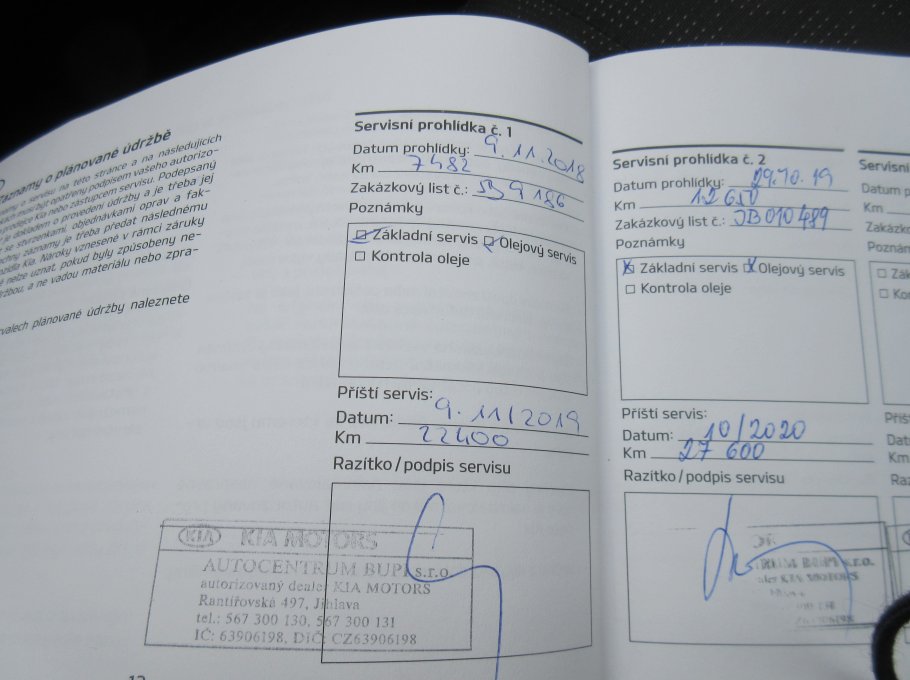 záznamy o plánované údržbě
o servisu na této stránce a na následujících
musí být opatřeny podpisem vašeho autorizo-
prodejce Kia nebo zástupcem servisu. Podepsaný
je dokladem o provedení údržby a je třeba jej
se stvrzenkami, objednávkami oprav a fak-
záznamy je třeba předat následnému
Kia. Nároky vznesené v rámci záruky
nelze uznat, pokud byly způsobeny ne-
a ne vadou materiálu nebo zpra-
plánované údržby naleznete
Servisní prohlídka č. 1
Datum prohlídky: 9.11.2018
Km 7482
Zakázkový list č.: JB9186
Poznámky
Základní servis Olejový servis
Kontrola oleje
Příští servis:
Datum: 9.11/2019
Km 22400
Razítko/podpis servisu
KIA KIA MOTORS
AUTOCENTRUM BUPI s.r.o.
autorizovaný dealer KIA MOTORS
Rantířovská 497, Jihlava
tel.: 567 300 130, 567 300 131
IČ: 63906198, DIČ: CZ63906198
Servisní prohlídka č. 2
Datum prohlídky: 29.10.19
Km 12650
Zakázkový list č.: JB010489
Poznámky
Základní servis Olejový servis
Kontrola oleje
Příští servis:
Datum: 10/2020
Km 27 600
Razítko/podpis servisu
BUPI s.r.o.
KIA MOTORS
Servisní
Datum p
Km
Zakázko
Poznám
Zák
Kon
Příš
Dat
Km
Raz